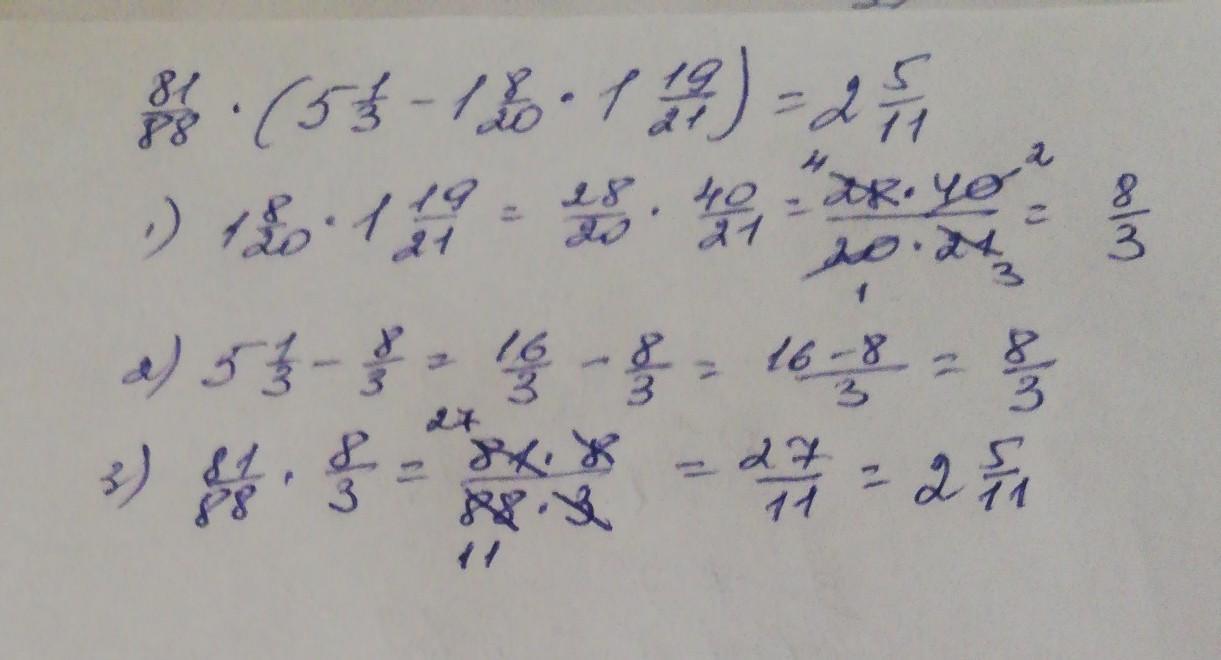 81/88 · (5 1/3 - 1 8/20 · 1 19/21) = 2 5/11
1) 1 8/20 · 1 19/21 = 28/20 · 40/21 = 4 28 · 40 2 / 20 · 21 1 3 = 8/3
2) 5 1/3 - 8/3 = 16/3 - 8/3 = 16-8/3 = 8/3
3) 81/88 · 8/3 = 27 81 · 8 / 88 · 3 11 = 27/11 = 2 5/11